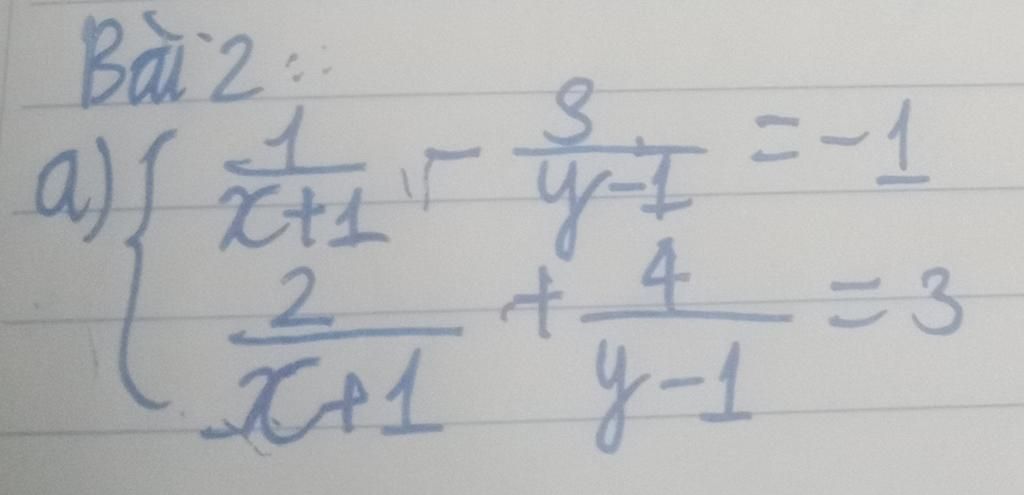 Bài 2:
a) { 1/(x+1) - 3/(y-1) = -1
2/(x+1) + 4/(y-1) = 3